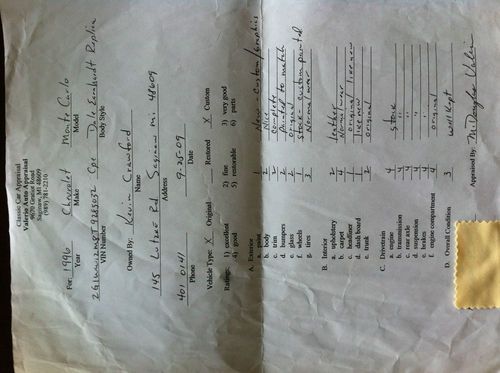 Classic Car Appraisal
Valerio Auto Appraisal
9670 Gratiot Road
Saginaw, MI 48609
(989) 781-2210
For: 1996 Chevrolet Monte Carlo
Year Make Model
Cpe Dale Earnhardt Replica
VIN Number Body Style
Owned By: Kevin Crawford
Name
145 Rd Saginaw Mi 48609
Address
401 0141 9-25-09
Phone Date
Vehicle Type: X Original Restored X Custom
Ratings: 1) excellent 2) fine 3) very good
4) good 5) restorable 6) parts
A. Exterior
a. paint 1 New - Custom/graphics
b. body 2 Nice
c. trim 2 Complete
d. bumpers 2 painted to match
e. glass 2 original
f. wheels 1 stock - custom painted
g. tires 3 Normal wear
B. Interior
a. upholstery 2 leather
b. carpet 4 Normal wear
c. headliner 1 original
d. dash board 1 like new
e. trunk 2 original
C. Drivetrain
a. engine 4 stock
b. transmission 4 "
c. rear axle 4 "
d. suspension 4 "
e. brakes 4 "
f. engine compartment 4 original
D. Overall Condition 3 well kept
Appraised By: